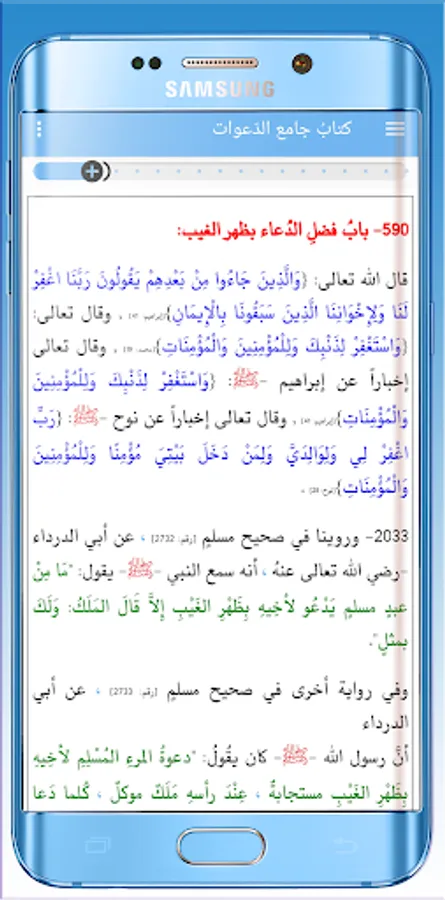 SAMSUNG
كتابُ جامع الدَعوات
590- بابُ فضلِ الدُعاء بظهر الغيب:
قال الله تعالى: {وَالَّذِينَ جَاءُوا مِنْ بَعْدِهِمْ يَقُولُونَ رَبَّنَا اغْفِرْ
لَنَا وَلِإِخْوَانِنَا الَّذِينَ سَبَقُونَا بِالْإِيمَانِ} ، وقال تعالى:
{وَاسْتَغْفِرْ لِذَنْبِكَ وَلِلْمُؤْمِنِينَ وَالْمُؤْمِنَاتِ} ، وقال تعالى
إخباراً عن إبراهيم -ﷺ: {وَاسْتَغْفِرْ لِذَنْبِكَ وَلِلْمُؤْمِنِينَ
وَالْمُؤْمِنَاتِ} ، وقال تعالى إخباراً عن نوح -ﷺ: {رَبِّ
اغْفِرْ لِي وَلِوَالِدَيَّ وَلِمَنْ دَخَلَ بَيْتِيَ مُؤْمِنًا وَلِلْمُؤْمِنِينَ
وَالْمُؤْمِنَاتِ} [نوح: 28] .
2033- وروينا في صحيح مسلمٍ [رقم: 2732] ، عن أبي الدرداء
-رضي الله تعالى عنهُ ، أنه سمع النبي -ﷺ- يقول: "مَا مِنْ
عبدٍ مسلمٍ يَدْعُو لأخِيهِ بِظَهْرِ الغَيْبِ إِلاَّ قَالَ المَلَكُ: وَلَكَ
بمثلٍ".
وفي رواية أخرى في صحيح مسلمٍ [رقم: 2733] ، عن أبي
الدرداء
أنَّ رسول الله -ﷺ- كان يقُولُ: "دعوةُ المرءِ المُسْلِمِ لأخِيهِ
بِظَهْرِ الغَيْبِ مستجابةٌ ، عِنْدَ رأسِهِ مَلَكٌ موكلٌ ، كُلما دَعا